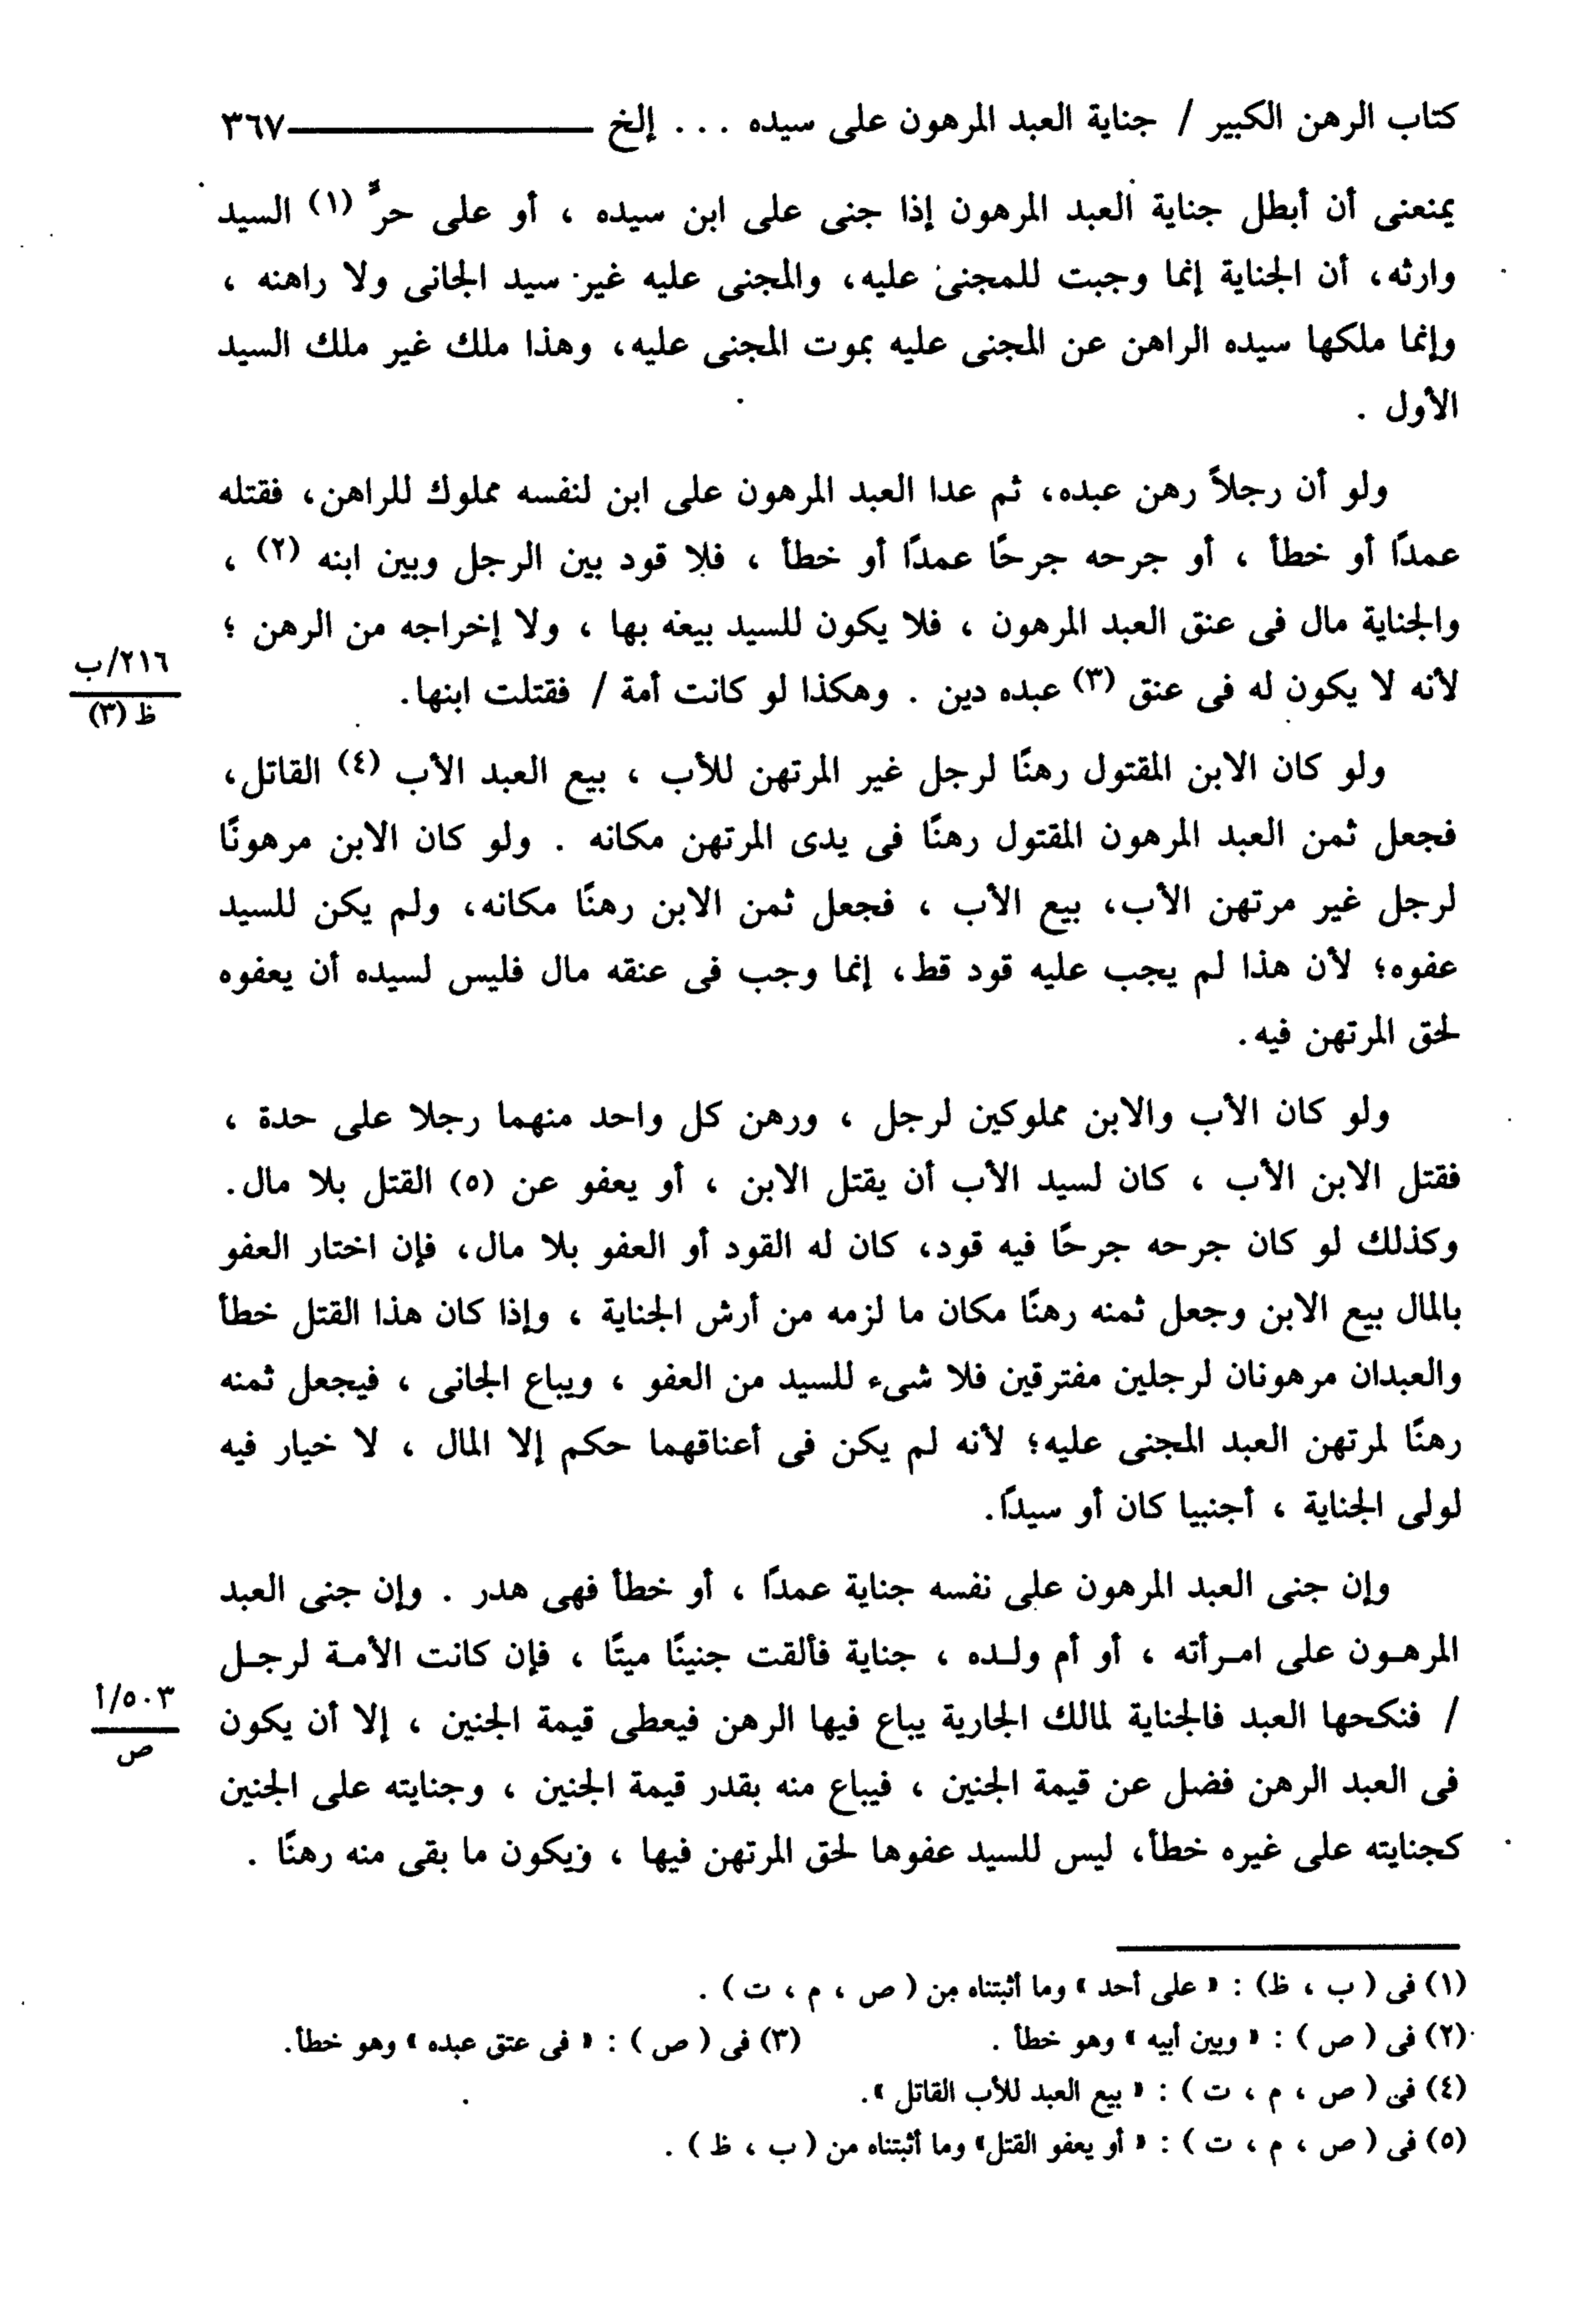 كتاب الرهن الكبير / جناية العبد المرهون على سيده ... إلخ ـــــــــ ٣٦٧
يمنعنى أن أبطل جناية العبد المرهون إذا جنى على ابن سيده ، أو على حرٍّ (١) السيد
وارثه، أن الجناية إنما وجبت للمجنى عليه، والمجنى عليه غير سيد الجانى ولا راهنه ،
وإنما ملكها سيده الراهن عن المجنى عليه بموت المجنى عليه، وهذا ملك غير ملك السيد
الأول .
ولو أن رجلاً رهن عبده، ثم عدا العبد المرهون على ابن لنفسه مملوك للراهن، فقتله
عمدًا أو خطأ ، أو جرحه جرحًا عمدًا أو خطأ ، فلا قود بين الرجل وبين ابنه (٢) ،
والجناية مال فى عنق العبد المرهون ، فلا يكون للسيد بيعه بها ، ولا إخراجه من الرهن ؛
٢١٦/ب
ظ (٣)
لأنه لا يكون له فى عنق (٣) عبده دين . وهكذا لو كانت أمة / فقتلت ابنها.
ولو كان الابن المقتول رهنًا لرجل غير المرتهن للأب ، بيع العبد الأب (٤) القاتل،
فجعل ثمن العبد المرهون المقتول رهنًا فى يدى المرتهن مكانه . ولو كان الابن مرهونًا
لرجل غير مرتهن الأب، بيع الأب ، فجعل ثمن الابن رهنًا مكانه، ولم يكن للسيد
عفوه؛ لأن هذا لم يجب عليه قود قط، إنما وجب فى عنقه مال فليس لسيده أن يعفوه
لحق المرتهن فيه.
ولو كان الأب والابن مملوكين لرجل ، ورهن كل واحد منهما رجلا على حدة ،
فقتل الابن الأب ، كان لسيد الأب أن يقتل الابن ، أو يعفو عن (٥) القتل بلا مال.
وكذلك لو كان جرحه جرحًا فيه قود، كان له القود أو العفو بلا مال، فإن اختار العفو
بالمال بيع الابن وجعل ثمنه رهنًا مكان ما لزمه من أرش الجناية ، وإذا كان هذا القتل خطأ
والعبدان مرهونان لرجلين مفترقين فلا شىء للسيد من العفو ، ويباع الجانى ، فيجعل ثمنه
رهنًا لمرتهن العبد المجنى عليه؛ لأنه لم يكن فى أعناقهما حكم إلا المال ، لا خيار فيه
لولى الجناية ، أجنبيا كان أو سيدًا.
وإن جنى العبد المرهون على نفسه جناية عمدًا ، أو خطأ فهى هدر . وإن جنى العبد
المرهـون على امـرأته ، أو أم ولـده ، جناية فألقت جنينًا ميتًا ، فإن كانت الأمـة لرجـل
٥٠٣/أ
ص
/ فنكحها العبد فالجناية لمالك الجارية يباع فيها الرهن فيعطى قيمة الجنين ، إلا أن يكون
فى العبد الرهن فضل عن قيمة الجنين ، فيباع منه بقدر قيمة الجنين ، وجنايته على الجنين
كجنايته على غيره خطأ، ليس للسيد عفوها لحق المرتهن فيها ، ويكون ما بقى منه رهنًا .
(١) فى ( ب ، ظ) : « على أحد » وما أثبتناه من ( ص ، م ، ت ) .
(٢) فى ( ص ) : « وبين أبيه » وهو خطأ . (٣) فى ( ص ) : « فى عتق عبده » وهو خطأ.
(٤) فى ( ص ، م ، ت ) : « بيع العبد للأب القاتل ».
(٥) فى ( ص ، م ، ت ) : « أو يعفو القتل» وما أثبتناه من ( ب ، ظ ) .